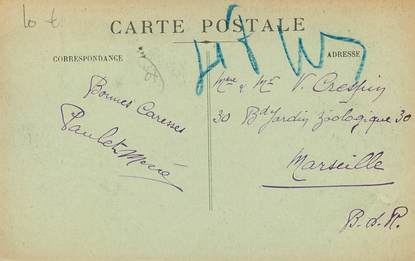 10 €
CARTE POSTALE
CORRESPONDANCE
ADRESSE
Bonnes Caresses
Mme & Mr V. Crespin
30 Bd Jardin Zoologique 30
Marseille
B. d. R.